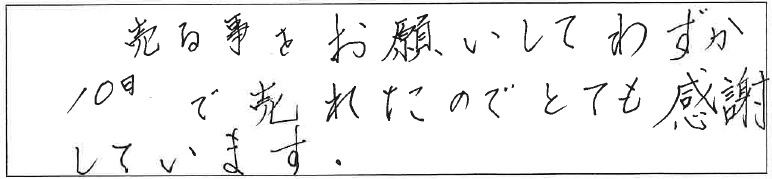 売る事をお願いしてわずか
10日で売れたのでとても感謝
しています.